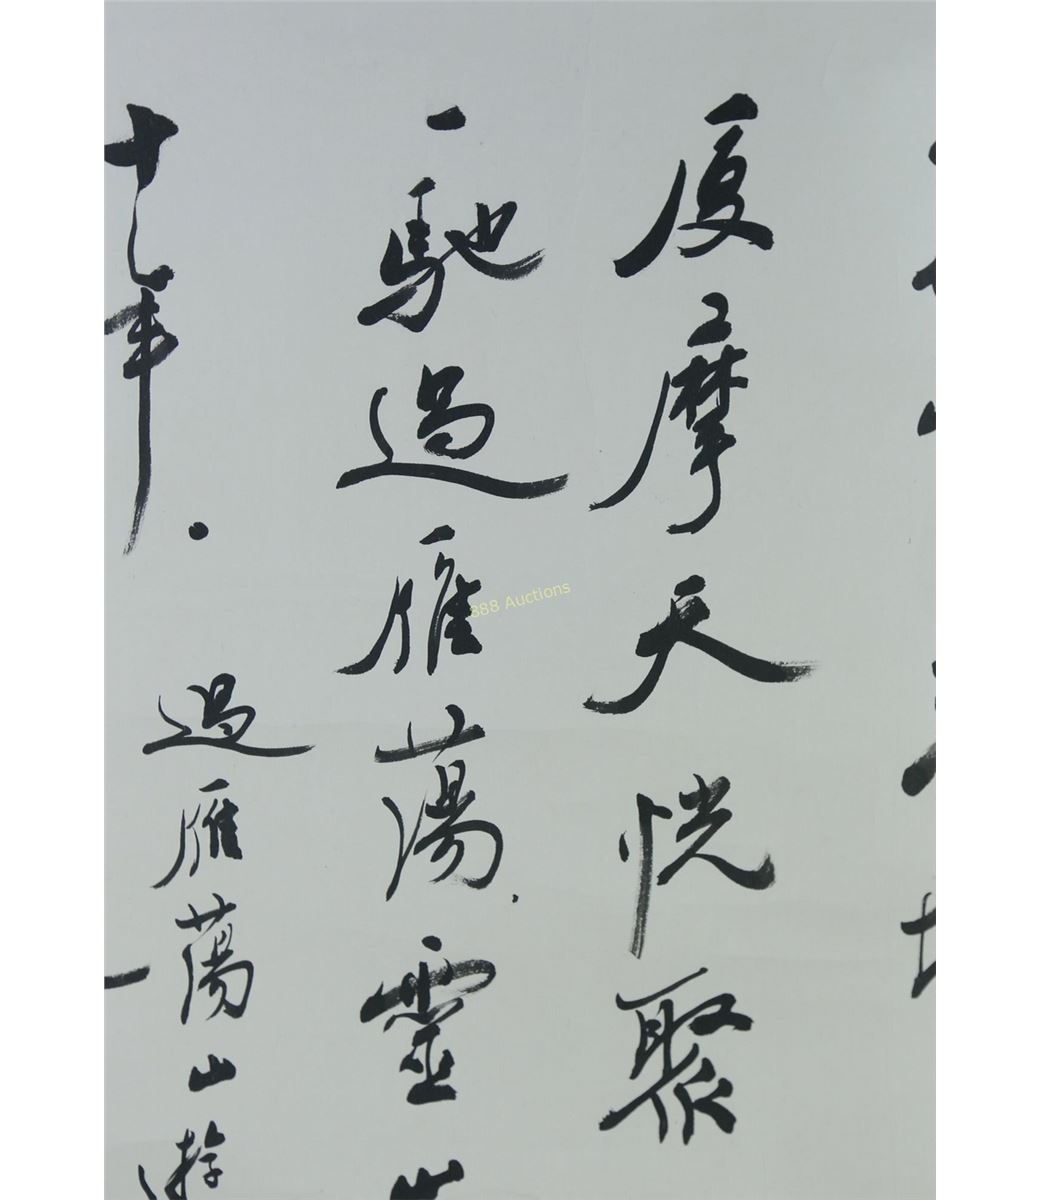 厦摩天恍聚
一馳過雁蕩靈山
十年
過雁蕩山遊
888 Auctions